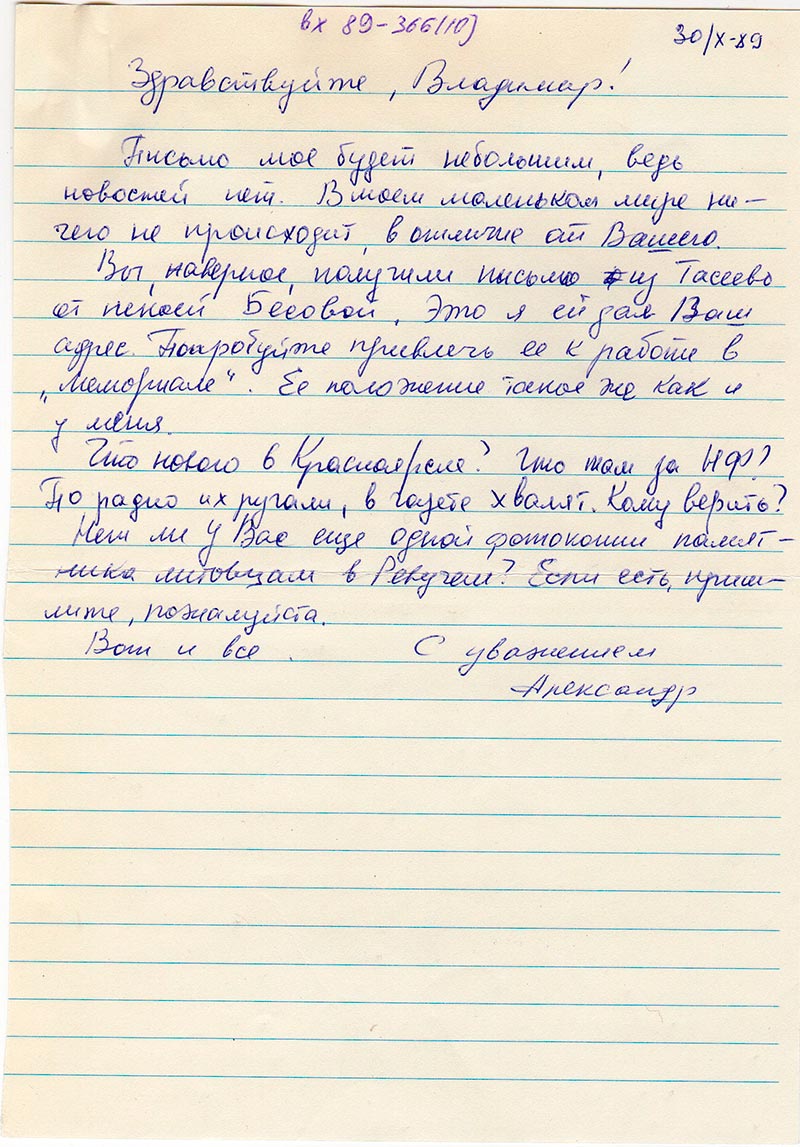 вх 89-366(10)
30/X-89
Здравствуйте, Владимир!
Письмо мое будет небольшим, ведь
новостей нет. В моем маленьком мире ни-
чего не происходит, в отличие от Вашего.
Вы, наверное, получили письмо из Тасеево
от некоей Бесовой. Это я ей дал Ваш
адрес. Попробуйте привлечь ее к работе в
„Мемориале“. Ее положение такое же как и
у меня.
Что нового в Красноярске? Что там за НФ?
По радио их ругали, в газете хвалят. Кому верить?
Нет ли у Вас еще одной фотокопии памят-
ника литовцам в Ревучем? Если есть, приш-
лите, пожалуйста.
Вот и все.
С уважением
Александр